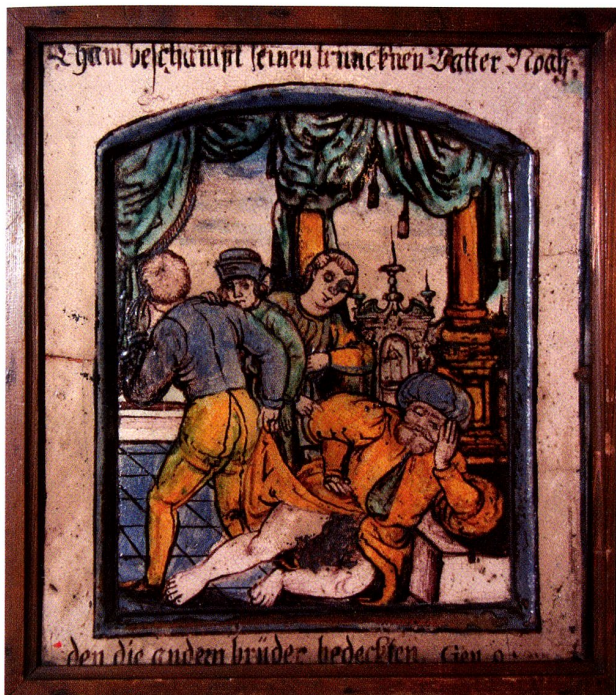 Cham beschampt seinen truncknen Vatter Noah,
den die andern brüder bedeckten. Gen. 9